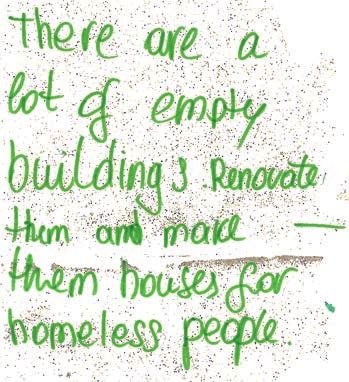 there are a
lot of empty
buildings. Renovate
them and make
them houses for
homeless people.